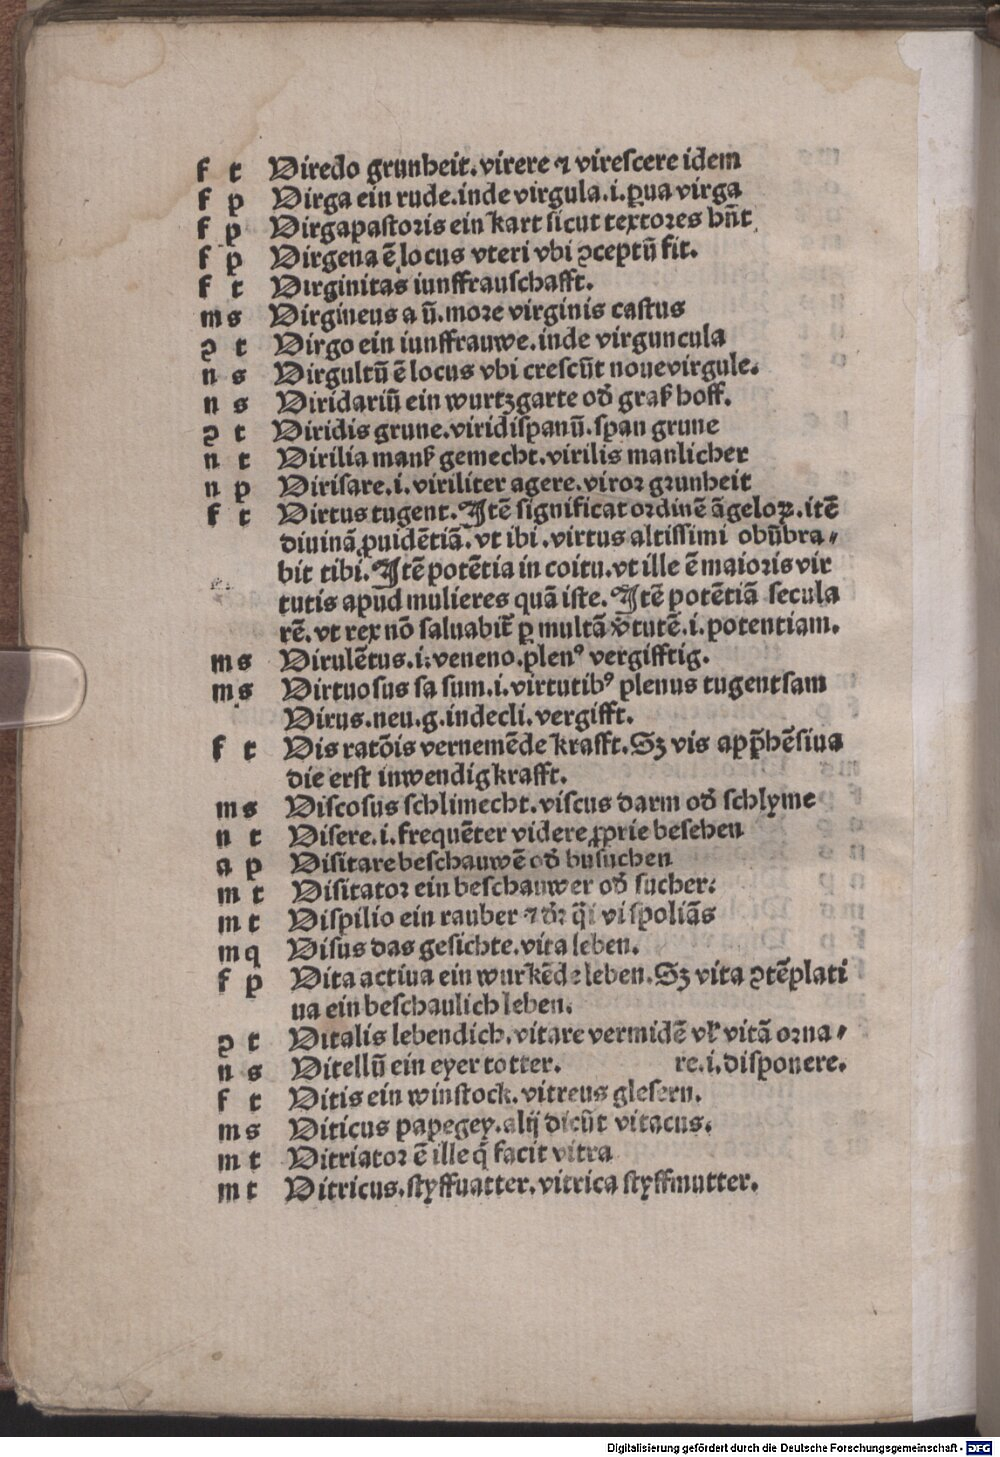 f t Viredo grunheit. virere ⁊ virescere idem
f p Virga ein rude. inde virgula. i. ꝑua virga
f p Virgapastoris ein kart sicut textores hn̄t
f p Virgena ē locus vteri vbi ↄceptū fit.
f t Virginitas iunffrauschafft.
m s Virgineus a ū. more virginis castus
ↄ t Virgo ein iunffrauwe. inde virguncula
n s Virgultū ē locus vbi crescūt noue virgule.
n s Viridariū ein wurtzgarte od̛ graß hoff.
ↄ t Viridis grune. viridispanū. span grune
n t Virilia manß gemecht. virilis manlicher
n p Virisare. i. viriliter agere. viror grunheit
f t Virtus tugent. Itē significat ordinē āgeloꝝ. itē
diuinā ꝓuidētiā. vt ibi. virtus altissimi obūbra⸗
bit tibi. Itē potētia in coitu. vt ille ē maioris vir
tutis apud mulieres quā iste. Itē potētiā secula
rē. vt rex nō saluabit̄ ꝑ multā v̛tutē. i. potentiam.
m s Virulētus. i. veneno. plenꝰ vergifftig.
m s Virtuosus sa sum. i. virtutibꝰ plenus tugentsam
Virus. neu. g. indecli. vergifft.
f t Vis ratōis vernemēde krafft. Sꝫ vis app̄hēsiua
die erst inwendig krafft.
m s Viscosus schlimecht. viscus darm od̛ schlyme
n t Visere. i. frequēter videre ꝓprie besehen
a p Visitare beschauwē od̛ busuchen
m t Visitator ein beschauwer od̛ sucher.
m t Vispilio ein rauber ⁊ dr̄ q̄i vi spoliās
m q Visus das gesichte. vita leben.
f p Vita actiua ein wurkēde leben. Sꝫ vita ↄtēplati
ua ein beschaulich leben.
ↄ t Vitalis lebendich. vitare vermidē vl̛ vitā orna⸗
n s Vitellū ein eyer totter. re. i. disponere.
f t Vitis ein winstock. vitreus glesern.
m s Viticus papegey. alij dicūt vitacus.
m t Vitriator ē ille q̄ facit vitra
m t Vitricus. styffuatter. vitrica styffmutter.
Digitalisierung gefördert durch die Deutsche Forschungsgemeinschaft - DFG